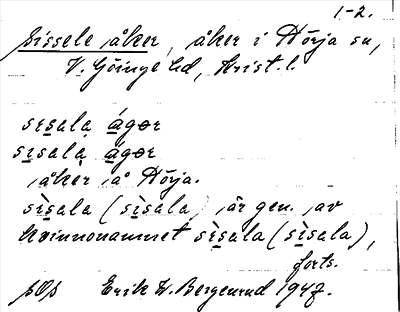 1-2.
Sissele åker, åker i Hörja sn,
V. Göinge hd, Krist. l.
sìsala ágər
sìsala ágər
åker å Hörja.
sìsala (sìsala) är gen. av
kvinnonamnet sìsala (sìsala),
forts.
Erik W. Bergenrud 1947.